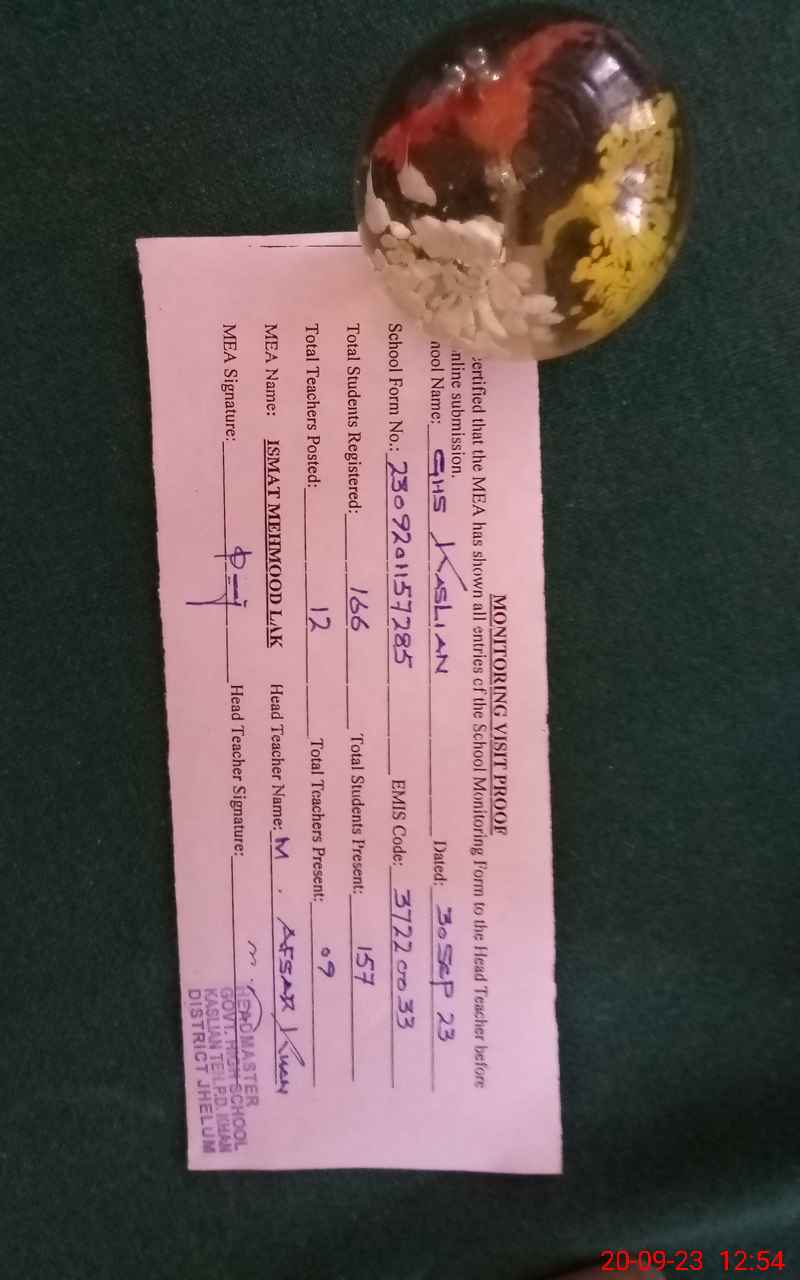 MONITORING VISIT PROOF
certified that the MEA has shown all entries of the School Monitoring Form to the Head Teacher before
online submission.
hool Name: GHS KASLIAN Dated: 30 Sep 23
School Form No.: 2309201157285 EMIS Code: 37220033
Total Students Registered: 166 Total Students Present: 157
Total Teachers Posted: 12 Total Teachers Present: 09
MEA Name: ISMAT MEHMOOD LAK Head Teacher Name: M. AFSAR Khan
MEA Signature: Head Teacher Signature:
HEADMASTER
GOVT. HIGH SCHOOL
KASLIAN TEH. P.D. KHAN
DISTRICT JHELUM
20-09-23 12:54